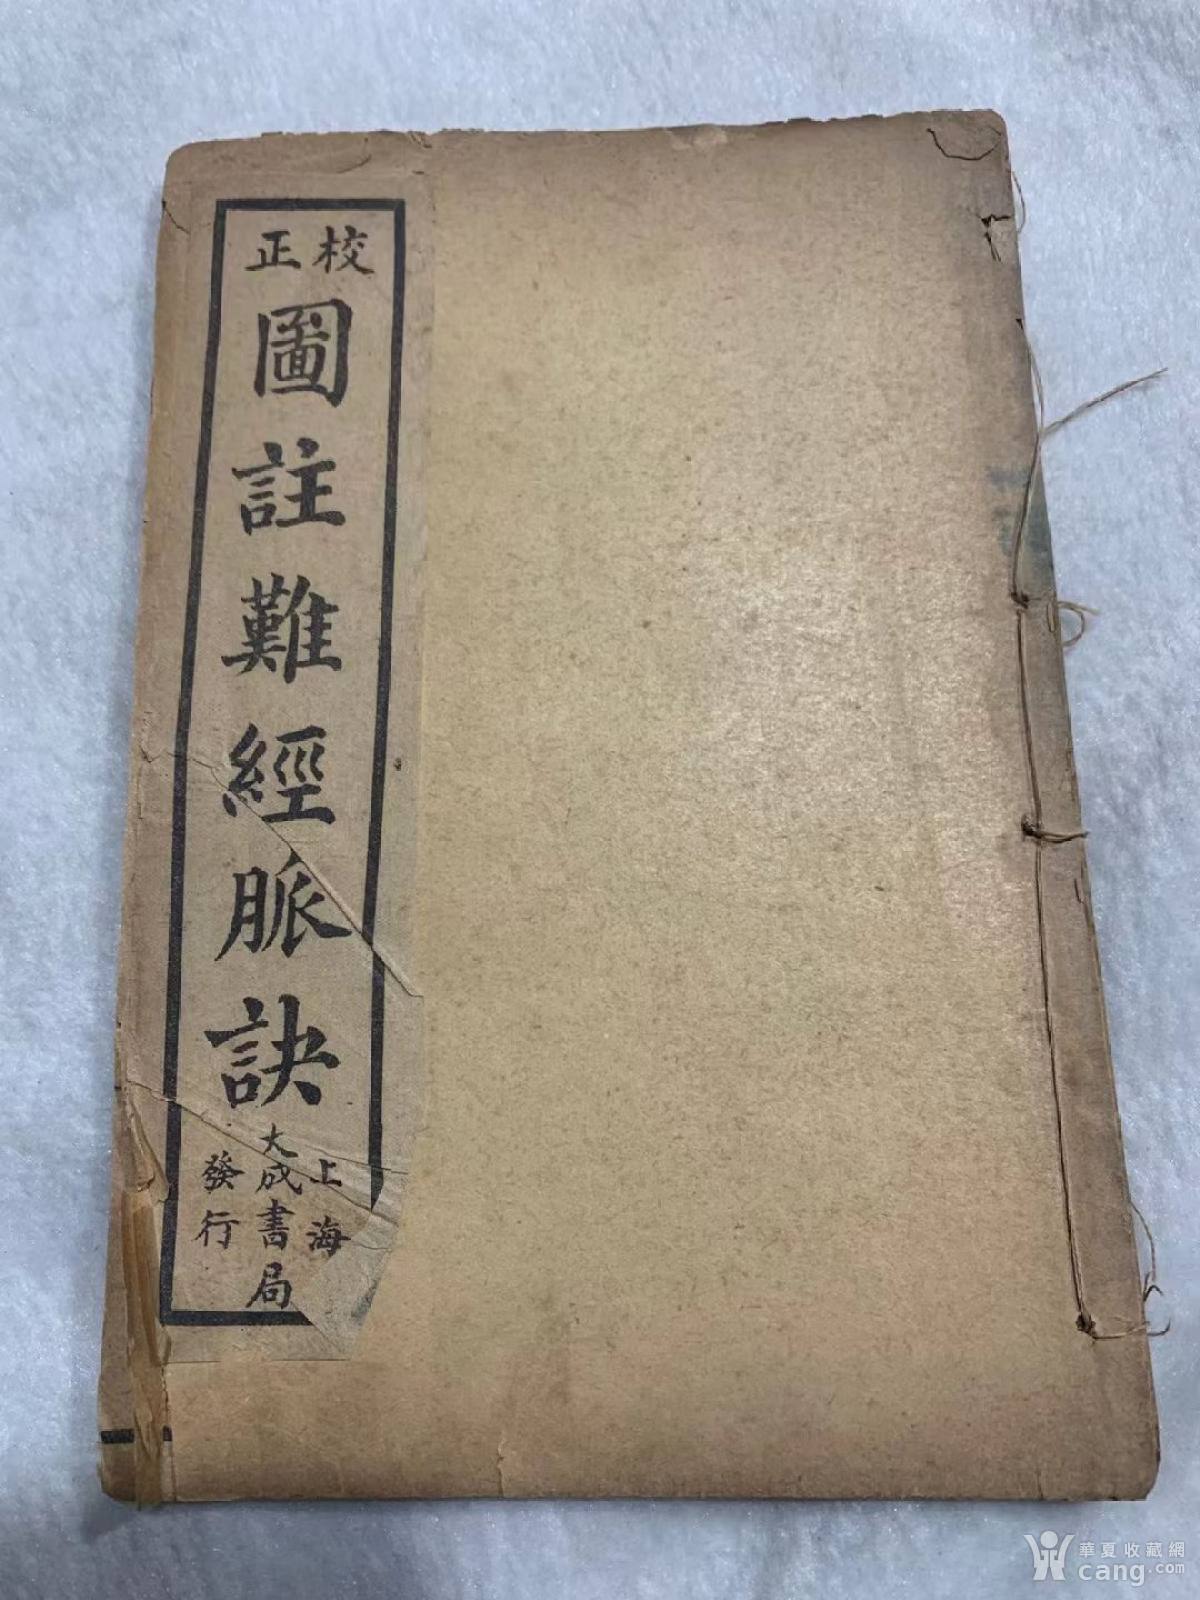 校正
圖註難經脈訣
上海
大成書局
發行
華夏收藏網
cang.com